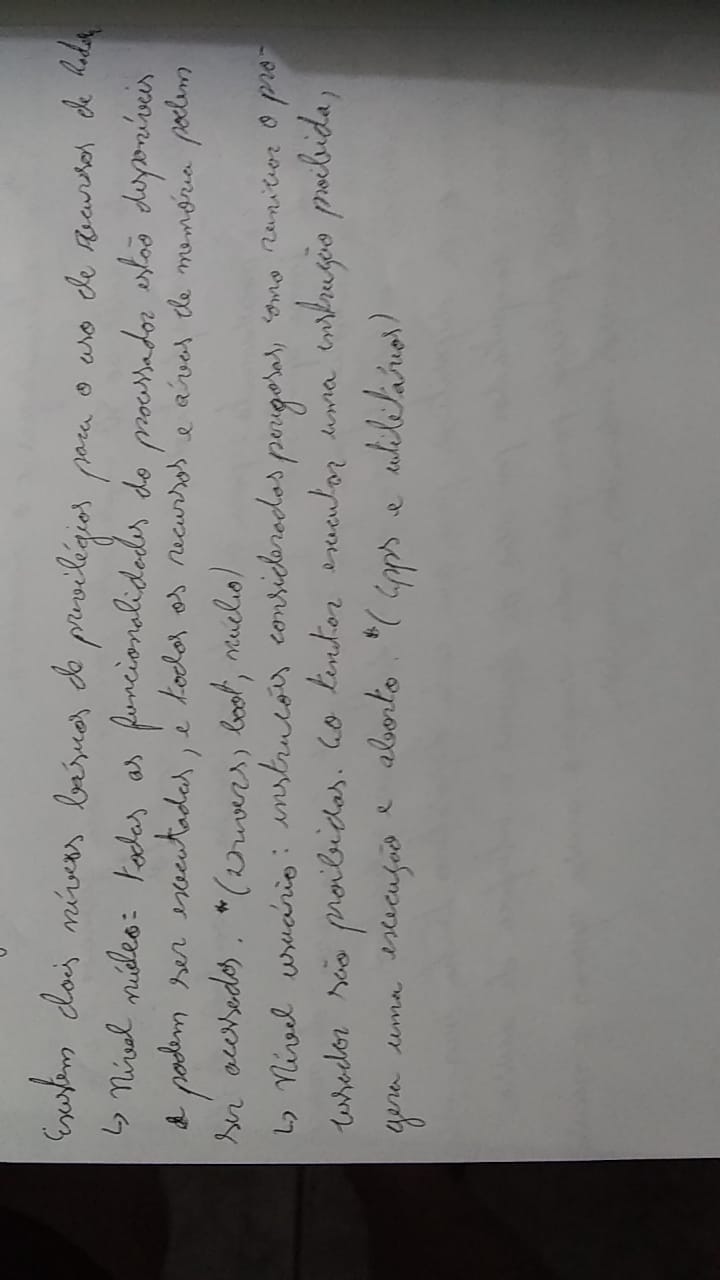 Existem dois níveis básicos de privilégios para o uso de recursos de
↳ Nível núcleo: todas as funcionalidades do processador estão disponíveis
e podem ser executadas, e todos os recursos e áreas de memória podem
ser acessados. *(Drivers, boot, núcleo)
↳ Nível usuário: instruções consideradas perigosas, como reiniciar o pro-
cessador são proibidas. Ao tentar executar uma instrução proibida,
gera uma execução e aborto. *(Apps e utilitários)